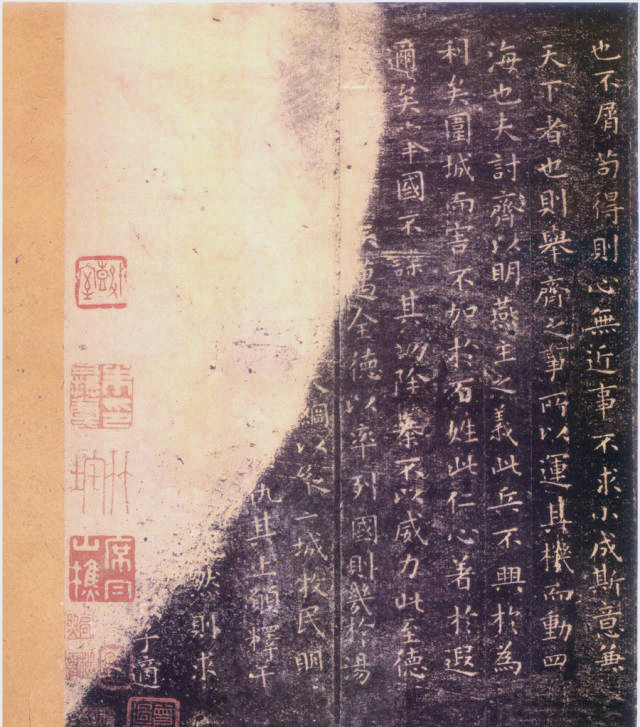 也不屑苟得則心無近事不求小成斯意兼
天下者也則舉齊之事所以運其機而動四
海也夫討齊以明燕主之義此兵不興於為
利矣圍城而害不加於百姓此仁心著於遐
邇矣舉國不謀其功除暴不以威力此至德
矣邁全德以率列國則幾於湯
綱以縱二城牧民明
仇其上願釋干
然則求
子適